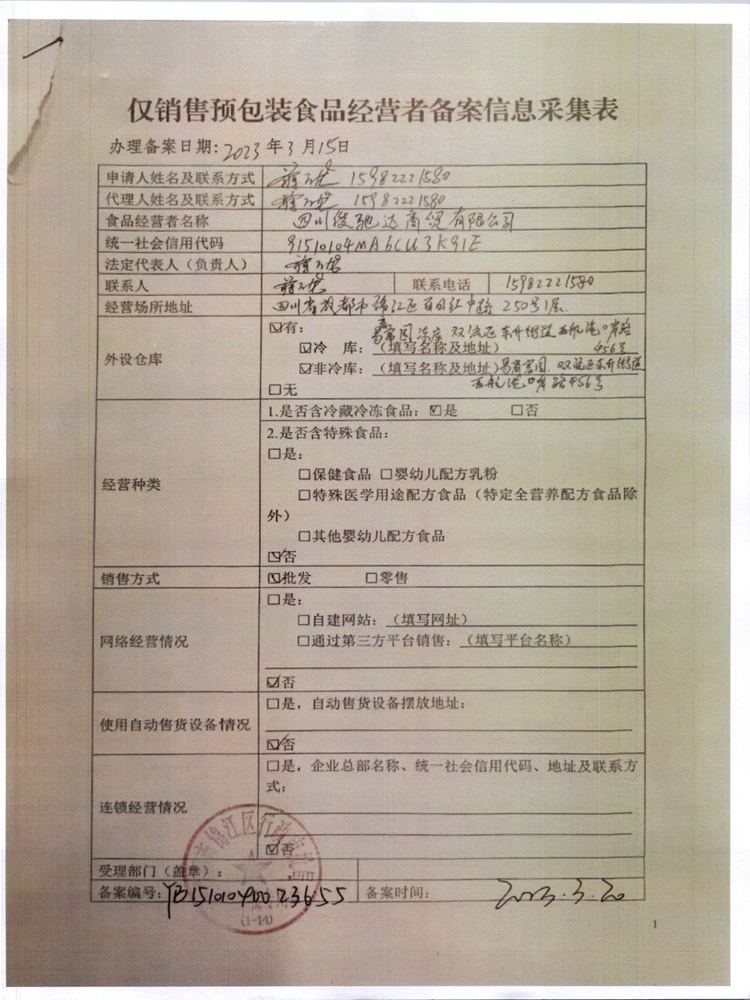 仅销售预包装食品经营者备案信息采集表
办理备案日期：2023年3月15日
申请人姓名及联系方式 15982221580
代理人姓名及联系方式 15982221580
食品经营者名称 四川俊驰达商贸有限公司
统一社会信用代码 91510104MA6CU3K91E
法定代表人（负责人）
联系人 联系电话 15982221580
经营场所地址 四川省成都市锦江区 中路250号1层
外设仓库
☑有： 冻库 双流区东升街道 航港 路
☑冷 库：（填写名称及地址） 456号
☑非冷库：（填写名称及地址） 双流区东升街道
航港 路456号
□无
经营种类
1.是否含冷藏冷冻食品：☑是 □否
2.是否含特殊食品：
□是：
□保健食品 □婴幼儿配方乳粉
□特殊医学用途配方食品（特定全营养配方食品除
外）
□其他婴幼儿配方食品
☑否
销售方式 ☑批发 □零售
网络经营情况
□是：
□自建网站：（填写网址）
□通过第三方平台销售：（填写平台名称）
☑否
使用自动售货设备情况
□是，自动售货设备摆放地址：
☑否
连锁经营情况
□是，企业总部名称、统一社会信用代码、地址及联系方
式：
☑否
受理部门（盖章）：
备案编号：YB15101040023655 备案时间： 2023.3.20
锦江区行政审批局
(1-14)
1